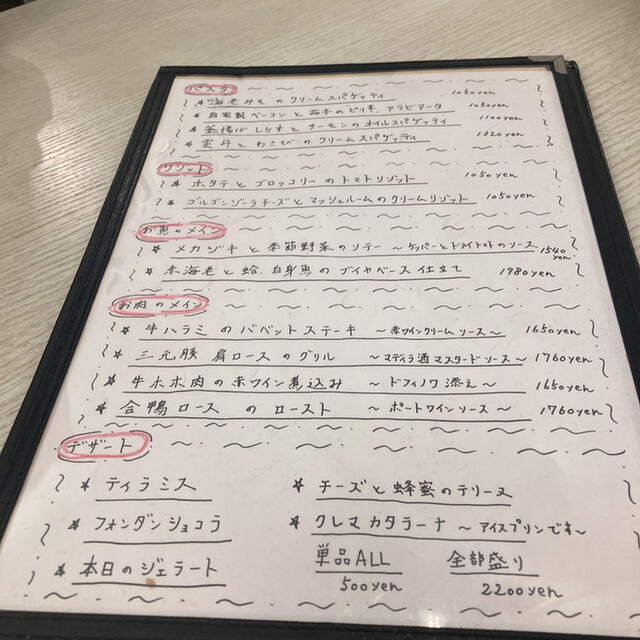 パスタ
* 海老みそのクリームスパゲッティ 1050yen
* 自家製ベーコンと茄子のピリ辛アラビアータ 1050yen
* 釜揚げしらすとサーモンのオイルスパゲッティ 1100yen
* 雲丹とわさびのクリームスパゲッティ 1320yen
リゾット
* ホタテとブロッコリーのトマトリゾット 1050yen
* ゴルゴンゾーラチーズとマッシュルームのクリームリゾット 1050yen
お魚のメイン
* メカジキと季節野菜のソテー ～ケッパーとドライトマトのソース 1540yen
* 赤海老と蛤、白身魚のブイヤベース仕立て 1980yen
お肉のメイン
* 牛ハラミのバベットステーキ ～赤ワインクリームソース～ 1650yen
* 三元豚 肩ロースのグリル ～マディラ酒マスタードソース～ 1760yen
* 牛ホホ肉の赤ワイン煮込み ～ドフィノワ添え～ 1650yen
* 合鴨ロースのロースト ～ポートワインソース～ 1760yen
デザート
* ティラミス
* チーズと蜂蜜のテリーヌ
* フォンダンショコラ
* クレマカタラーナ ～アイスプリンです～
* 本日のジェラート
単品ALL 全部盛り
500yen 2200yen